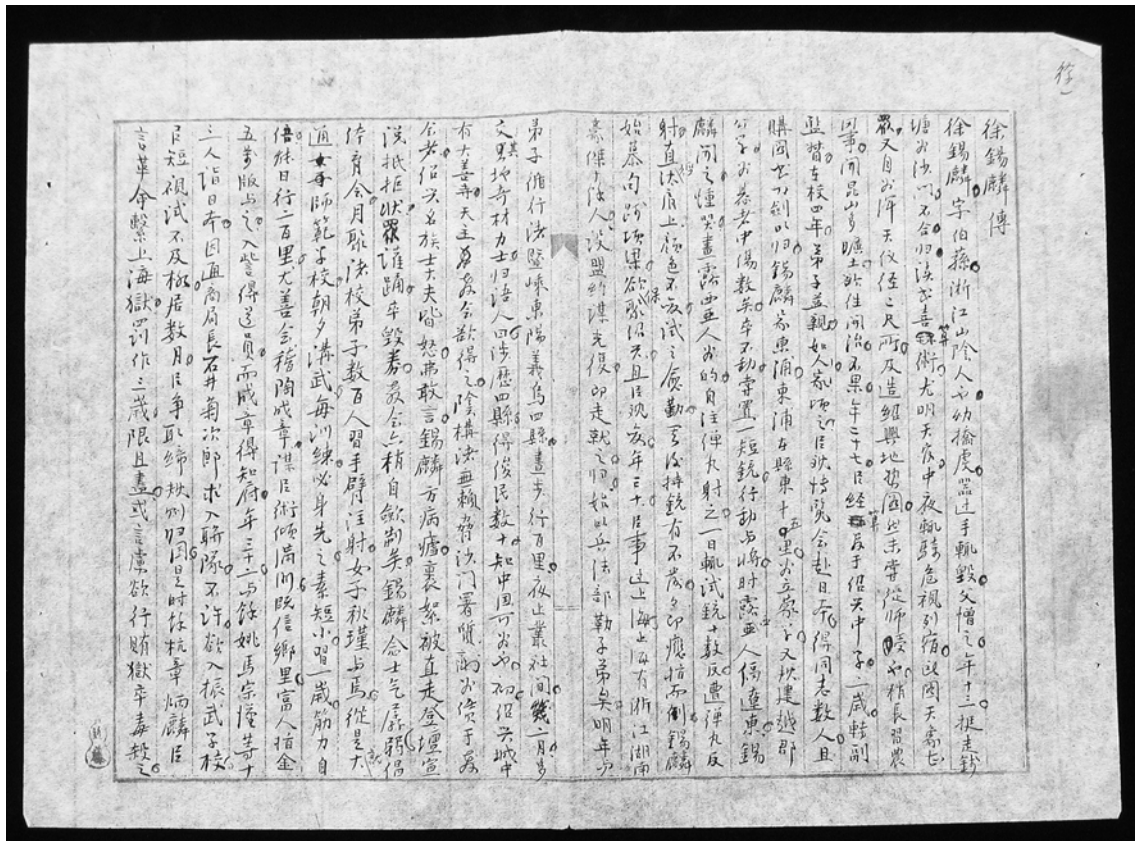 徐
徐錫麟傳
徐錫麟字伯蓀浙江山陰人也幼撟虔器十手輒毀父憎之年十三挺走錢
塘為沙門不合歸讀書喜算術尤明天官中夜輒騎危視列宿圖天象凸
又自為渾天儀徑二尺所及造紹興地勢圖其未嘗從師受也稍長習農
田事聞昆山多曠土欲往開治不果年二十七以經算教于紹興中學一歲轉副
監督在校四年弟子益親如人家頃之以赴博覽會赴日本得同志數人且
購圖書刀劍以歸錫麟家東浦東浦在縣東十五里為立蒙學又規建越郡
公學為忌者中傷數矣卒不動嘗置一短銃行動與將時露西亞人傷遼東錫
麟聞之慟哭畫露西亞人為的自注彈丸射之一日輒試銃十數反遭彈丸反
射直汰肩上顏色不變試之愈勤其後持銃有不發即應指而倒錫麟
始慕句踐項梁欲保聚紹興且以觀變年三十以事遊上海上海有浙江湖南
豪傑十餘人設盟約謀光復即走就之歸始以兵法部勒子弟矣明年
弟子循行諸暨嵊東陽義烏四縣晝步行百里夜止叢社間幾二月多
交其地奇材力士歸語人曰涉歷四縣得俊民數十知中國可為也初紹興城中
有大善寺天主教會欲得之陰構諸無賴脅沙門署質劑為僦于教
會者紹興名族士大夫皆怒弗敢言錫麟方病瘧裹絮被直走登壇宣
說抵拒狀眾讙踊卒毀券教會亦稍自斂制矣錫麟念士氣孱弱倡
體育會月聚諸校弟子數百人習手臂注射女子秋瑾與焉從是大
通師範學校朝夕講武每訓練必身先之素短小習一歲筋力自
倍能日行二百里尤善會稽陶成章謀以術傾滿洲既信鄉里富人指金
五萬版與之入訾得道員而成章得知府年三十三與餘姚馬宗漢等十
三人詣日本因通商局長石井菊次郎求入聯隊不許欲入振武學校
以短視試不及格居數月以爭取締規則歸國是時餘杭章炳麟以
言革命繫上海獄罰作三歲限且盡或言虜欲行賄獄卒毒殺之